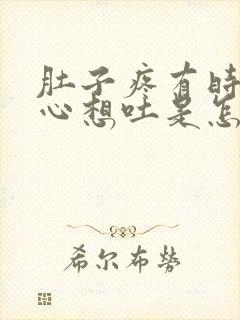 肚子疼有时
心想吐是怎
希尔布势